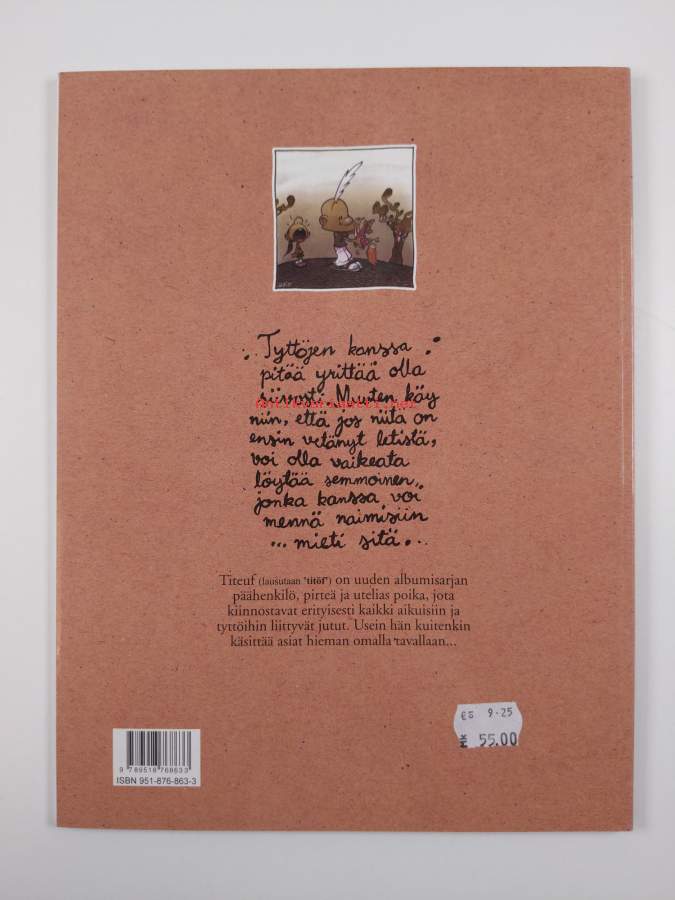 Tyttöjen kanssa
pitää yrittää olla
kiivosti. Muuten käy
niin, että jos niitä on
ensin vetänyt letistä,
voi olla vaikeata
löytää semmoinen,
jonka kanssa voi
mennä naimisiin
... mieti sitä...
Titeuf (lausutaan "titöf") on uuden albumisarjan
päähenkilö, pirteä ja utelias poika, jota
kiinnostavat erityisesti kaikki aikuisiin ja
tyttöihin liittyvät jutut. Usein hän kuitenkin
käsittää asiat hieman omalla tavallaan...
€5 9.25
MK 55.00
9 789518 768633
ISBN 951-876-863-3